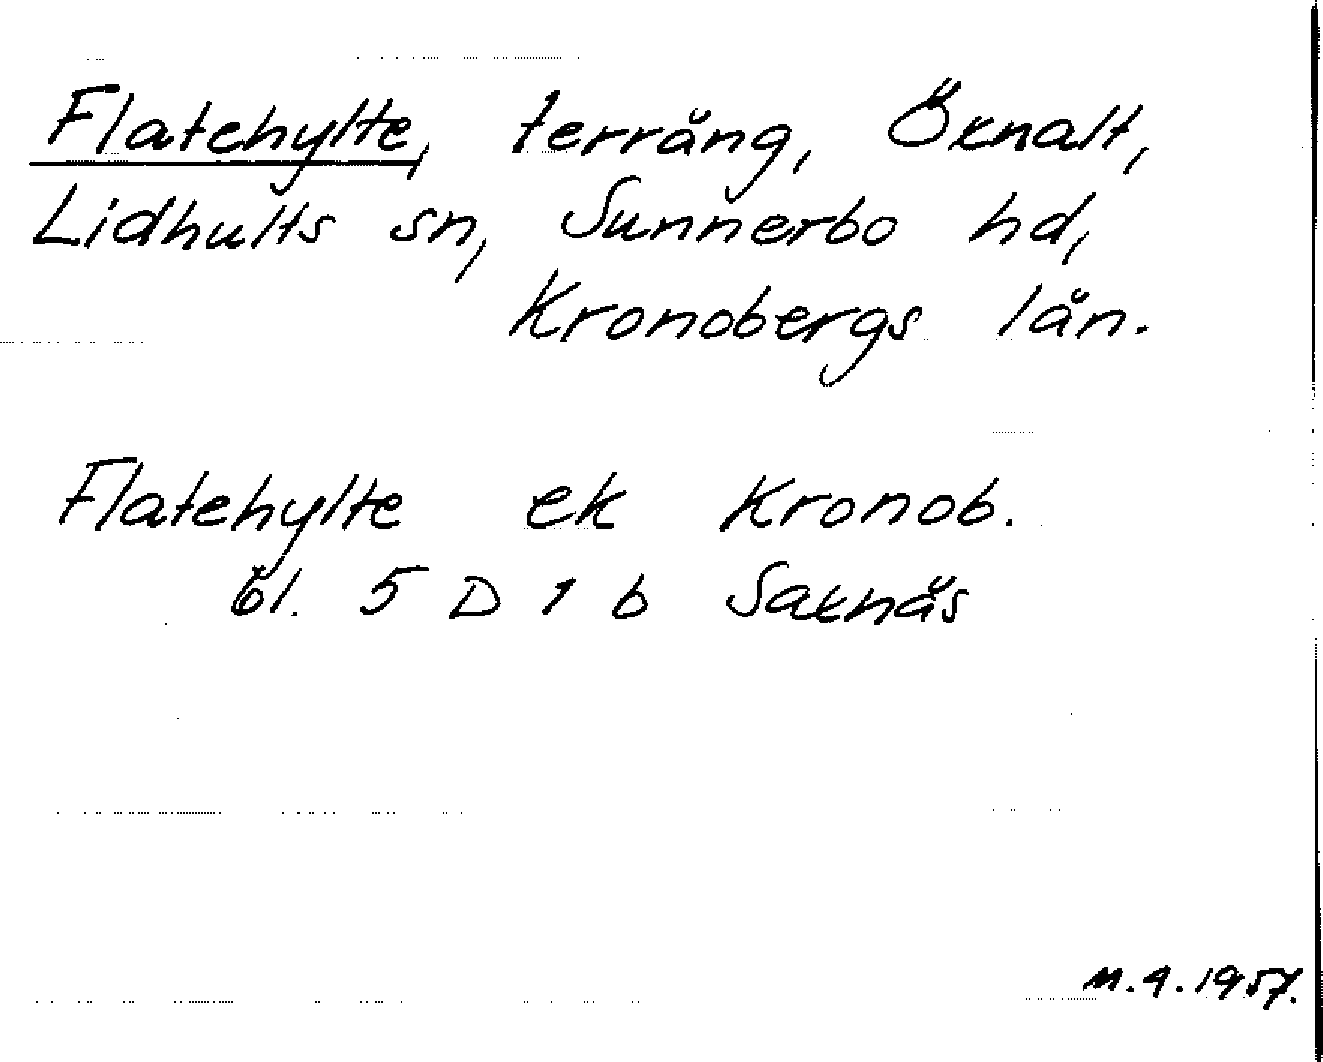 Flatehylte, terräng, Öknalt,
Lidhults sn, Sunnerbo hd,
Kronobergs län.
Flatehylte ek Kronob.
bl. 5 D 1 b Saknäs
M.A. 1957.